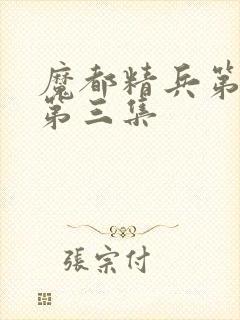 魔都精兵第
第三集
張宗付